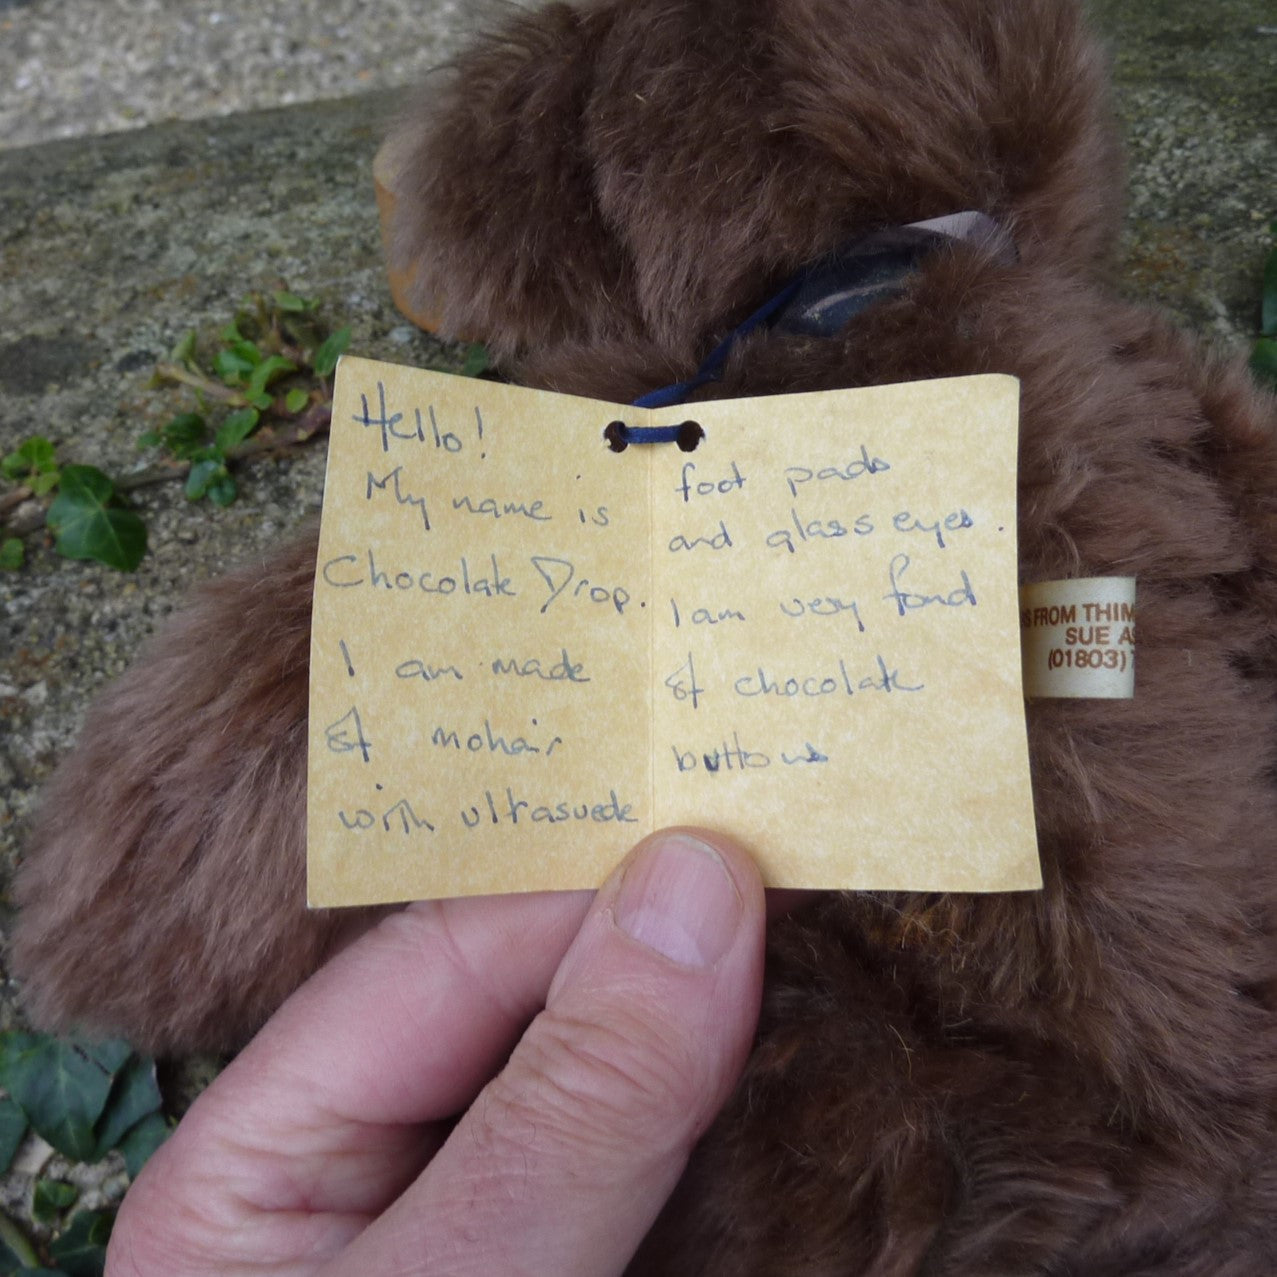 Hello!
My name is
Chocolate Drop.
I am made
of mohair
with ultrasuede
foot pads
and glass eyes.
I am very fond
of chocolate
buttons
FROM THIM
SUE AS
(01803)